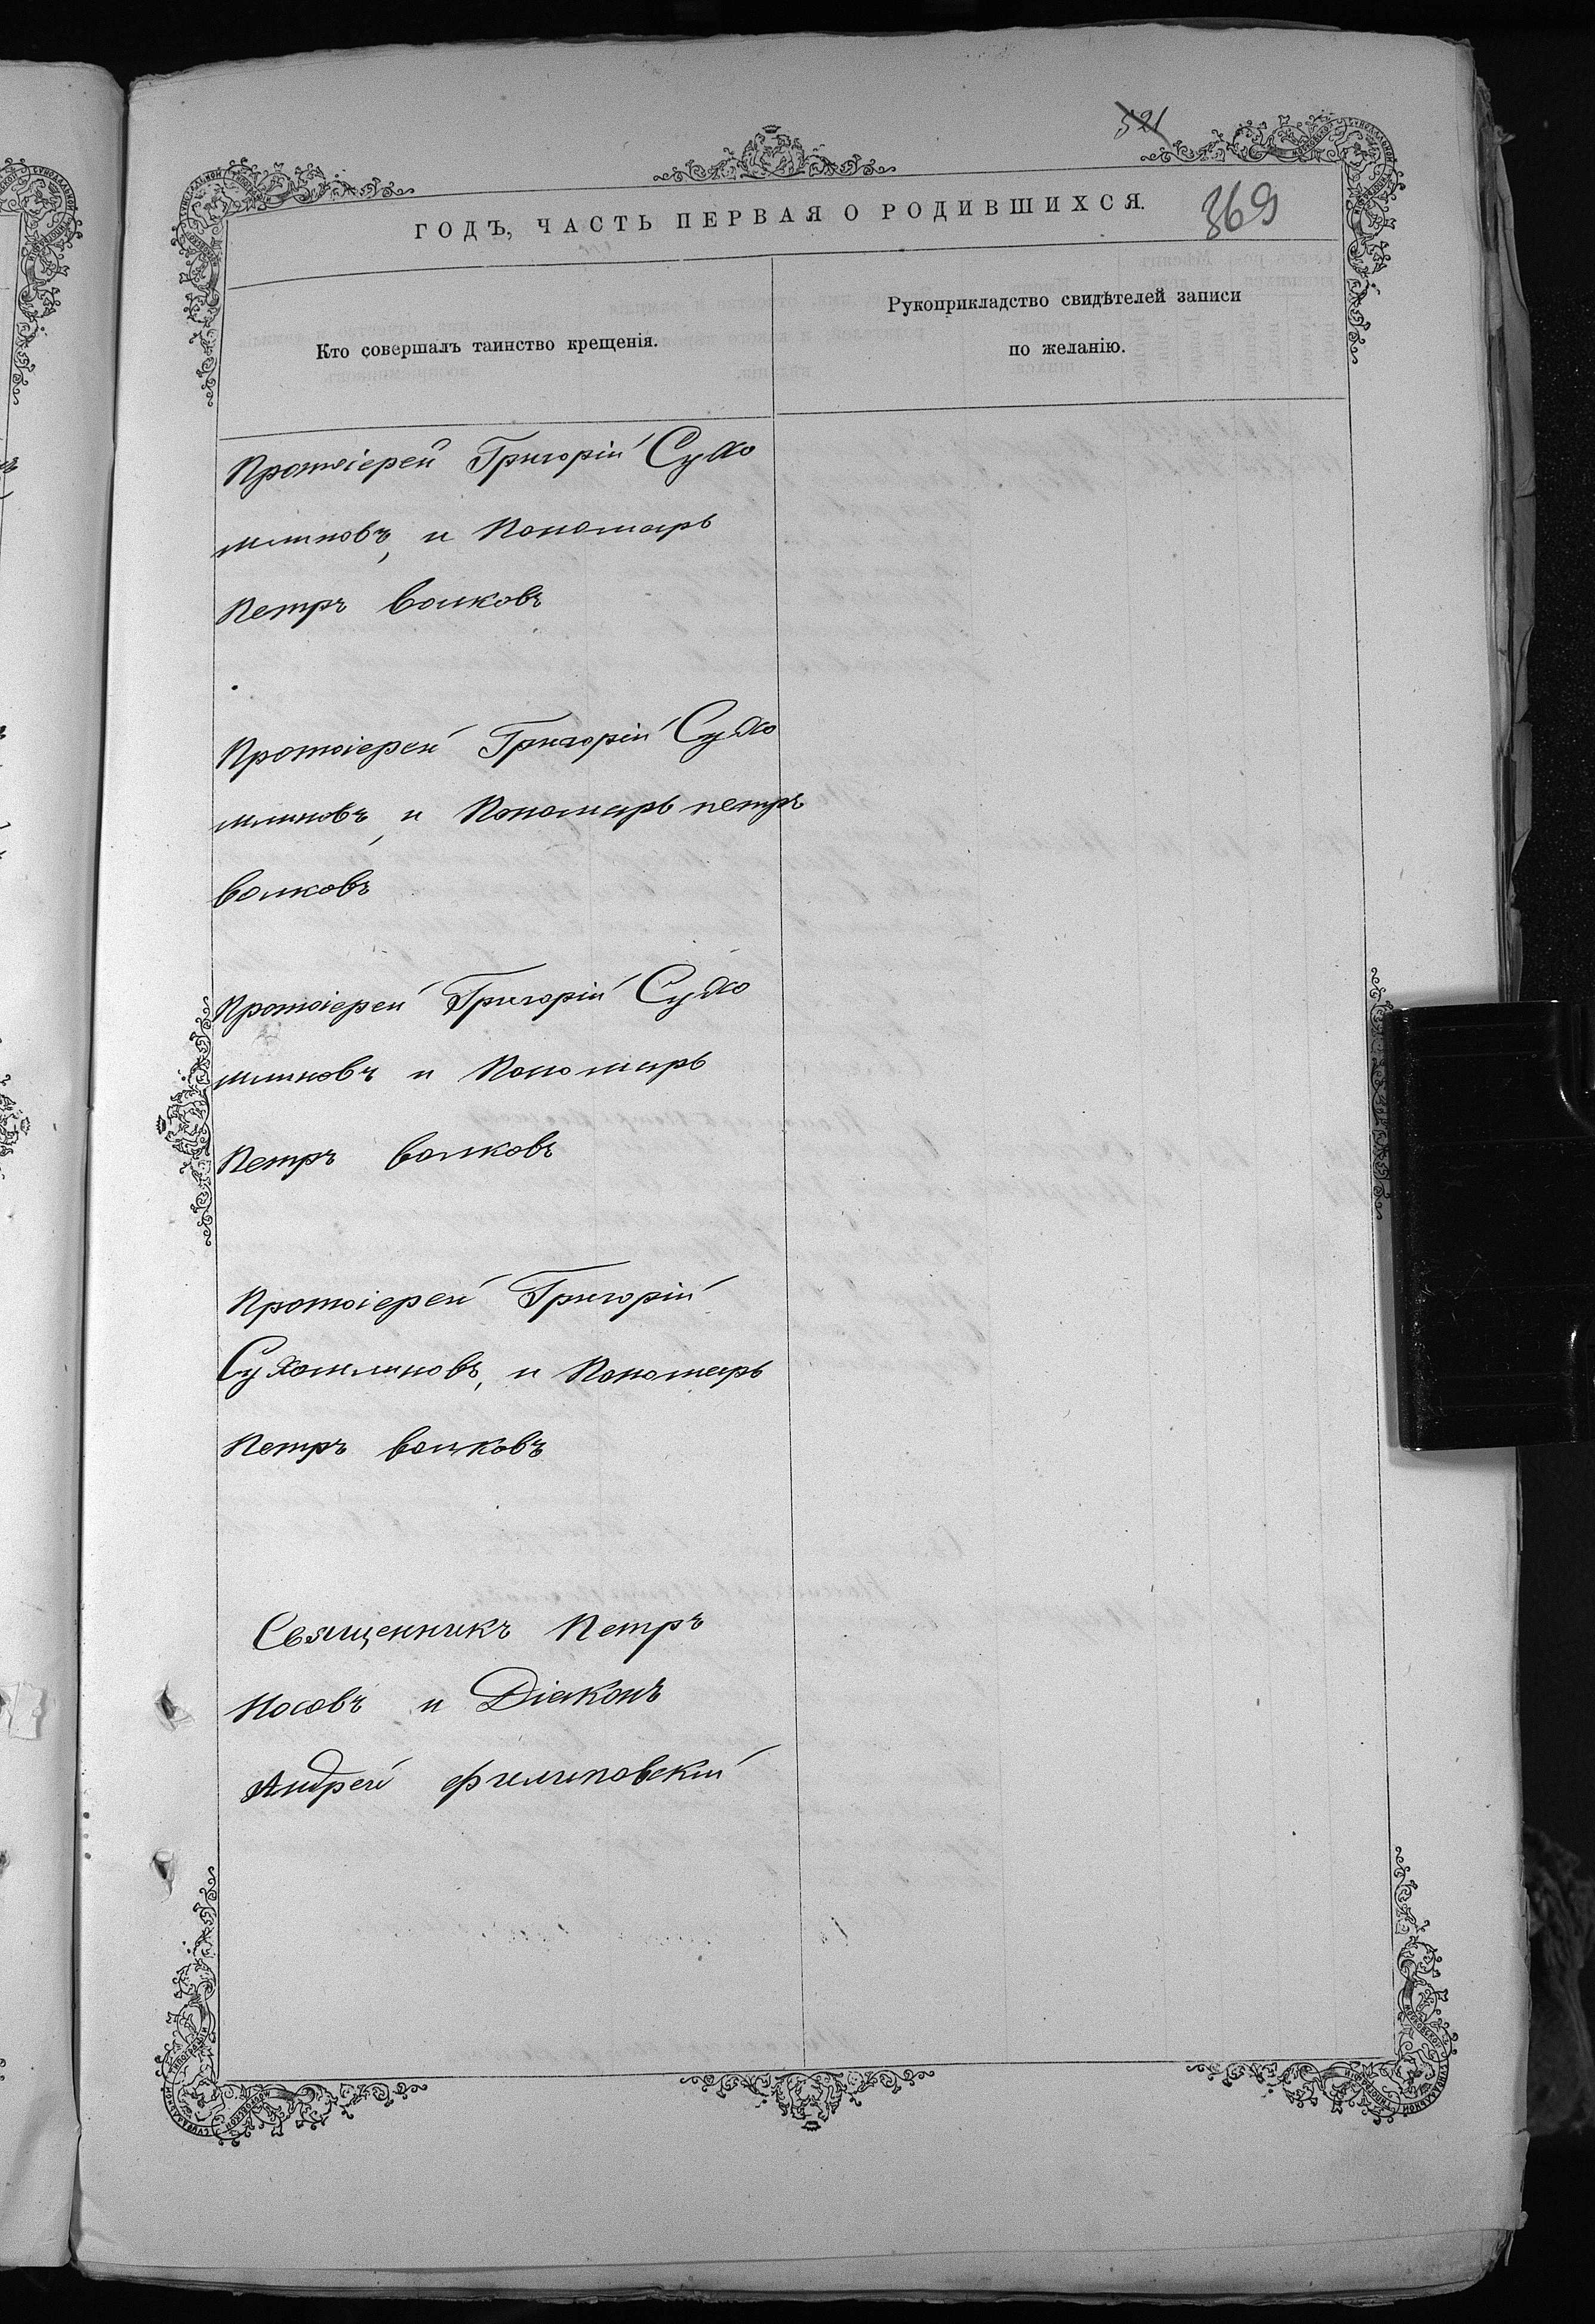 521
369
ГОДЪ, ЧАСТЬ ПЕРВАЯ О РОДИВШИХСЯ.
Кто совершалъ таинство крещенія.
Рукоприкладство свидѣтелей записи
по желанію.
Протоіерей Григорій Сухо
млиновъ, и Пономарь
Петръ Волковъ
Протоіерей Григорій Сухо
млиновъ, и Пономарь петръ
Волковъ
Протоіерей Григорій Сухо
млиновъ и Пономарь
Петръ Волковъ
Протоіерей Григорій
Сухомлиновъ, и Пономарь
Петръ Волковъ
Священникъ Петръ
Носовъ и Діаконъ
Андрей Филиповскій